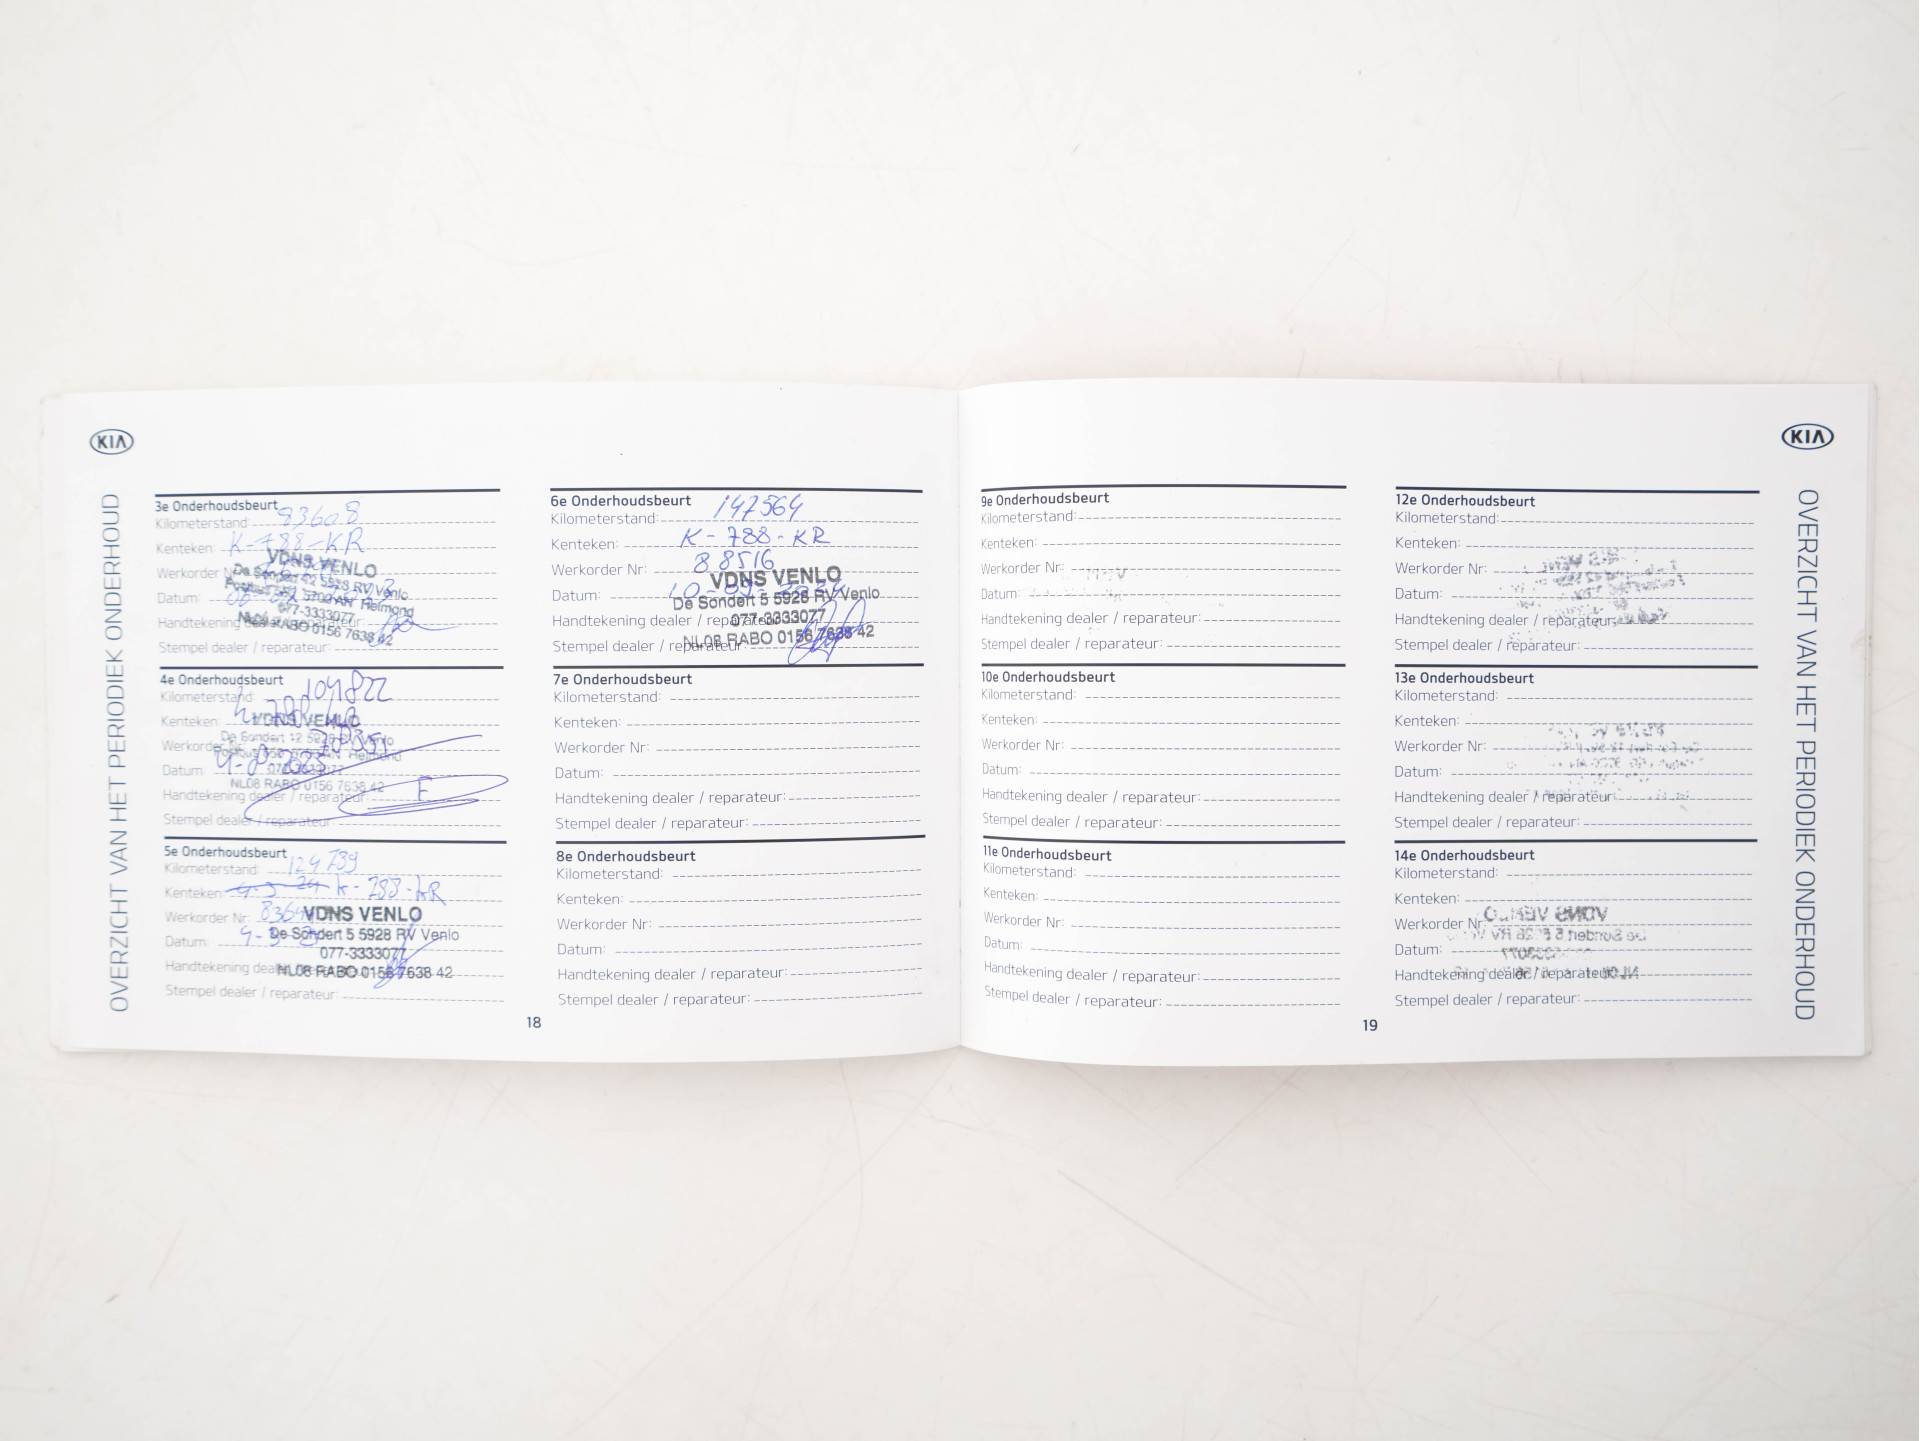 KIA
OVERZICHT VAN HET PERIODIEK ONDERHOUD
3e Onderhoudsbeurt
Kilometerstand: 83608
Kenteken: K-788-KR
Werkorder Nr:
Datum:
Handtekening dealer / reparateur:
Stempel dealer / reparateur:
VDNS VENLO
De Sondert 12 5928 RV Venlo
5700 AN Helmond
077-3333077
NL08 RABO 0156 7638 42
4e Onderhoudsbeurt
Kilometerstand: 104822
Kenteken:
Werkorder
Datum:
Handtekening dealer / reparateur:
Stempel dealer / reparateur:
VDNS VENLO
De Sondert 12 5928 RV Venlo
Helmond
077-3333077
NL08 RABO 0156 7638 42
5e Onderhoudsbeurt
Kilometerstand: 124739
Kenteken: K-788-KR
Werkorder Nr:
Datum:
Handtekening dealer / reparateur:
Stempel dealer / reparateur:
VDNS VENLO
De Sondert 5 5928 RV Venlo
077-3333077
NL08 RABO 0156 7638 42
6e Onderhoudsbeurt
Kilometerstand: 147564
Kenteken: K-788-KR
Werkorder Nr: 88516
Datum: 10-09-2024
Handtekening dealer / reparateur:
Stempel dealer / reparateur:
VDNS VENLO
De Sondert 5 5928 RV Venlo
077-3333077
NL08 RABO 0156 7638 42
7e Onderhoudsbeurt
Kilometerstand:
Kenteken:
Werkorder Nr:
Datum:
Handtekening dealer / reparateur:
Stempel dealer / reparateur:
8e Onderhoudsbeurt
Kilometerstand:
Kenteken:
Werkorder Nr:
Datum:
Handtekening dealer / reparateur:
Stempel dealer / reparateur:
18
9e Onderhoudsbeurt
Kilometerstand:
Kenteken:
Werkorder Nr:
Datum:
Handtekening dealer / reparateur:
Stempel dealer / reparateur:
10e Onderhoudsbeurt
Kilometerstand:
Kenteken:
Werkorder Nr:
Datum:
Handtekening dealer / reparateur:
Stempel dealer / reparateur:
11e Onderhoudsbeurt
Kilometerstand:
Kenteken:
Werkorder Nr:
Datum:
Handtekening dealer / reparateur:
Stempel dealer / reparateur:
12e Onderhoudsbeurt
Kilometerstand:
Kenteken:
Werkorder Nr:
Datum:
Handtekening dealer / reparateur:
Stempel dealer / reparateur:
13e Onderhoudsbeurt
Kilometerstand:
Kenteken:
Werkorder Nr:
Datum:
Handtekening dealer / reparateur:
Stempel dealer / reparateur:
14e Onderhoudsbeurt
Kilometerstand:
Kenteken:
Werkorder Nr:
Datum:
Handtekening dealer / reparateur:
Stempel dealer / reparateur:
19
KIA
OVERZICHT VAN HET PERIODIEK ONDERHOUD